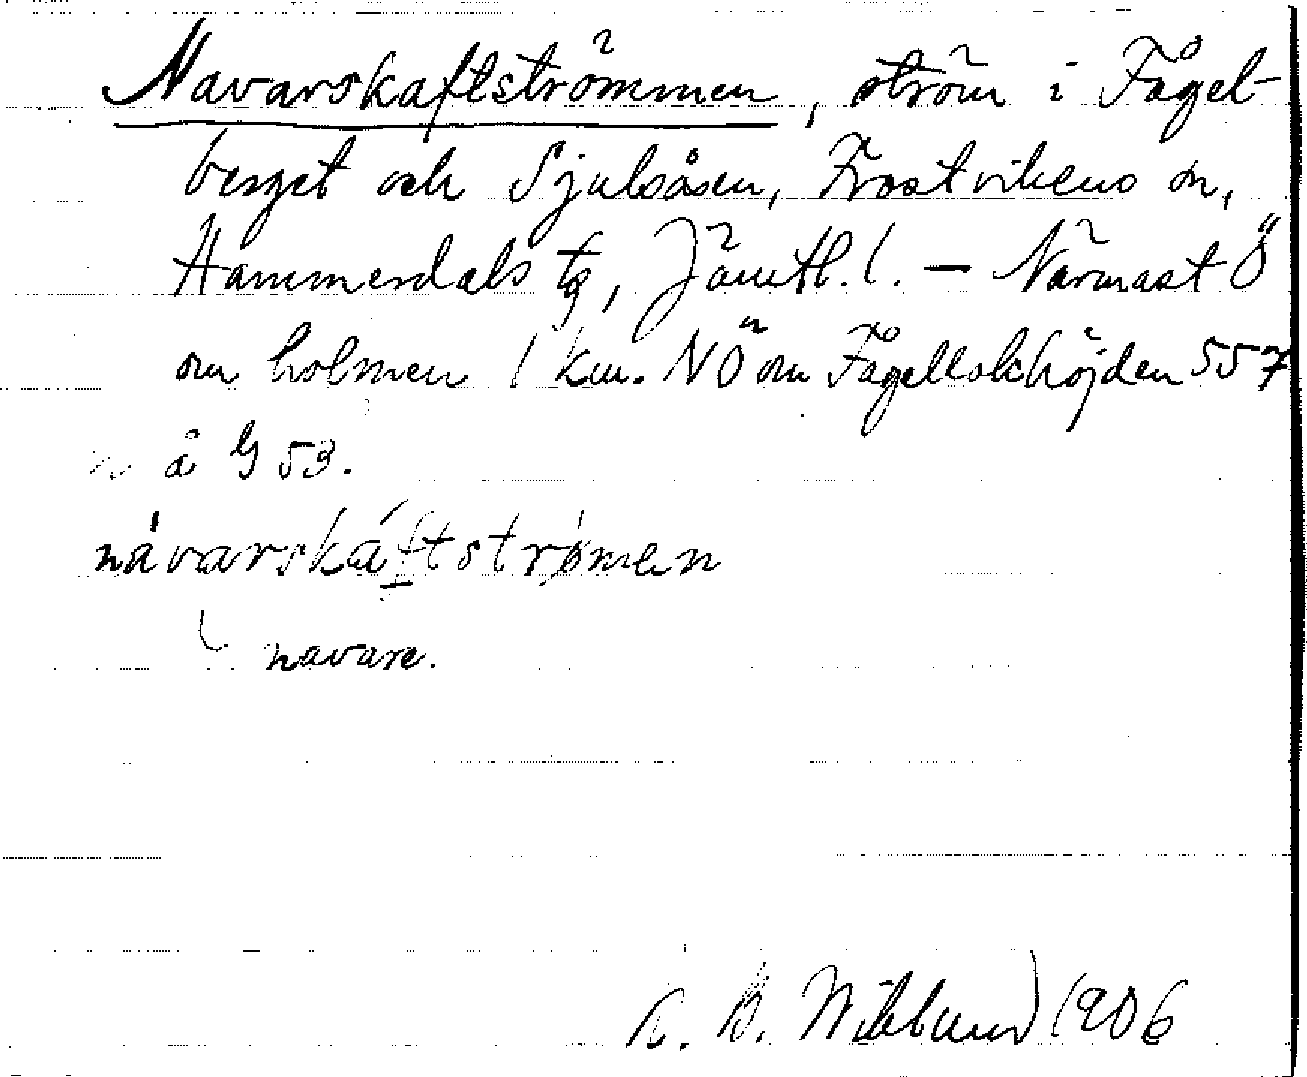 Navarskaftströmmen, ström i Fågel-
berget och Sjulsåsen, Frostvikens sn,
Hammerdals tg, Jämtl. l. — Närmast Ö
om holmen 1 km. NÖ om Fågellokhöjden 557
å G 53.
návarskáftstrǿmen
navare.
K. B. Wiklund 1906